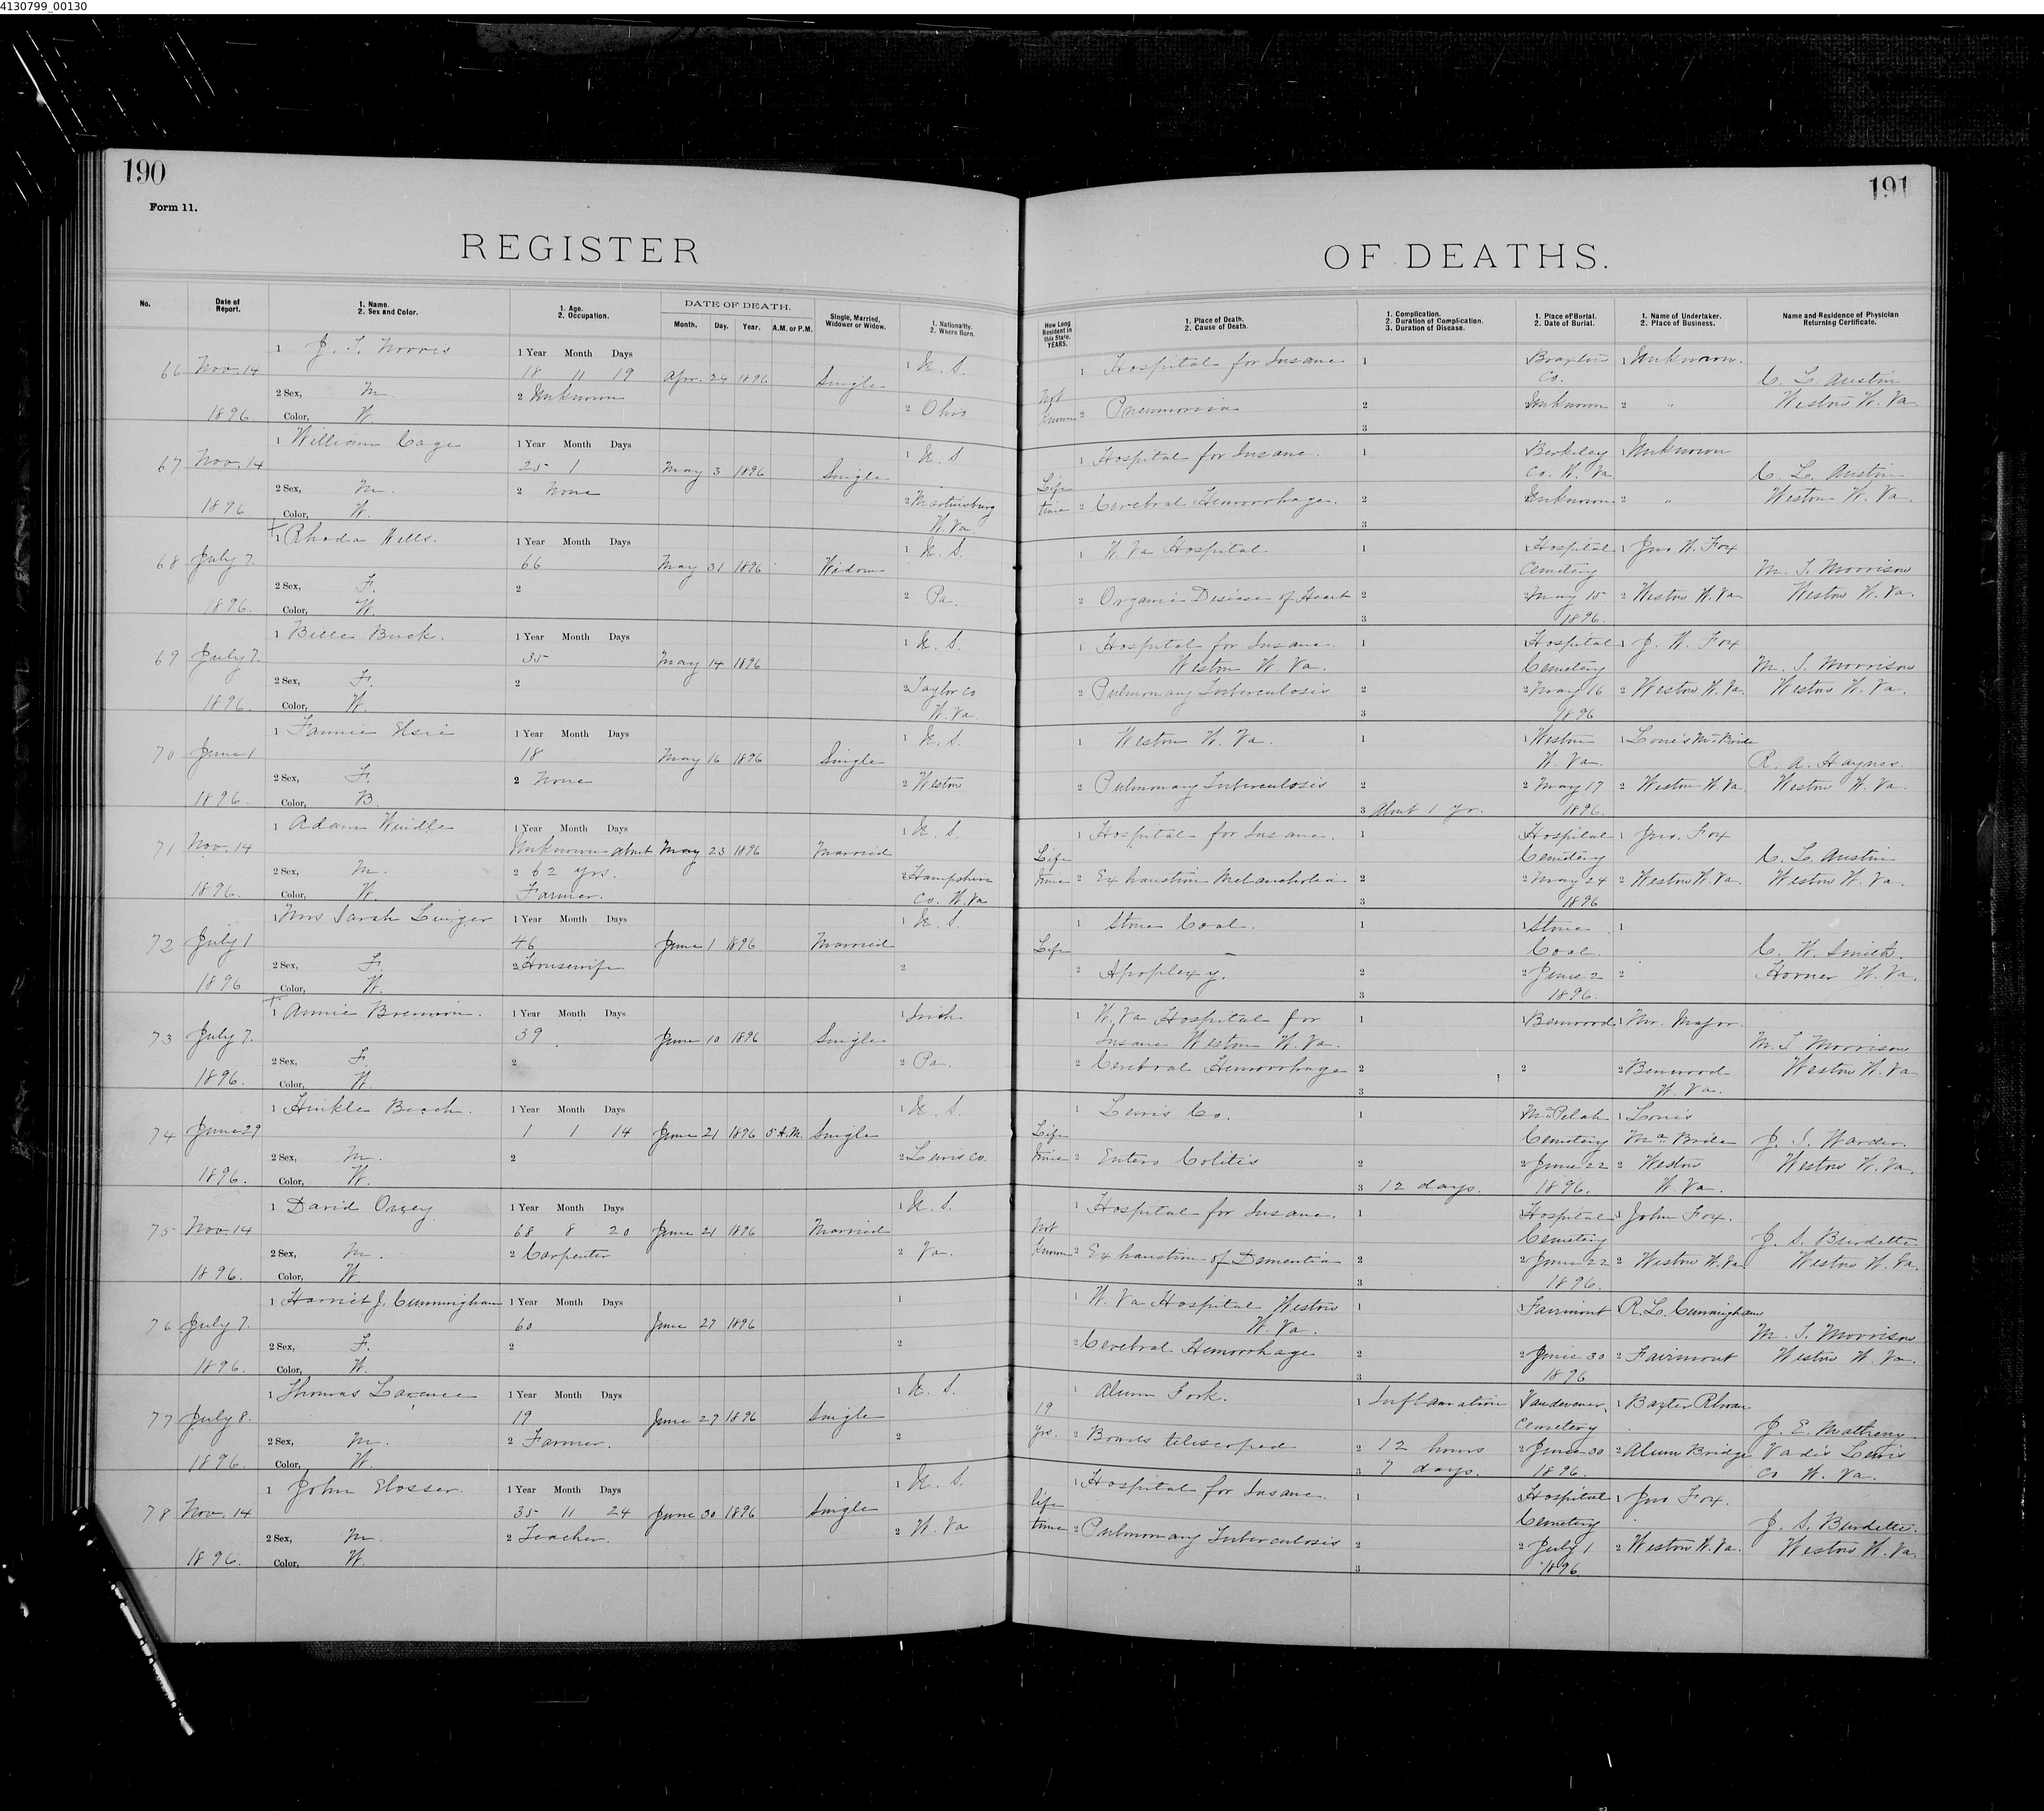 4130799_00130
190
191
Form 11.
REGISTER
OF DEATHS.
No.
Date of Report.
1. Name.
2. Sex and Color.
1. Age.
2. Occupation.
DATE OF DEATH.
Month. Day. Year. A.M. or P.M.
Single, Married, Widower or Widow.
1. Nationality.
2. Where Born.
How Long Resident in this State. YEARS.
1. Place of Death.
2. Cause of Death.
1. Complication.
2. Duration of Complication.
3. Duration of Disease.
1. Place of Burial.
2. Date of Burial.
1. Name of Undertaker.
2. Place of Business.
Name and Residence of Physician Returning Certificate.
66 Nov. 14 1896
1 Norris
2 Sex, M.
Color, W.
1 Year Month Days
18 11 19
2 Unknown
Apr. 24 1896 Single
1 U. S.
2 Ohio
Not Known
1 Hospital for Insane
2 Pneumonia
1
2
3
Braxton Co.
Unknown
1 Unknown.
2 "
C. L. Austin
Weston W. Va
67 Nov. 14 1896
1 William Cage
2 Sex, M.
Color, W.
1 Year Month Days
25 1
2 None
May 3 1896 Single
1 U. S
2 Martinsburg W. Va
Life time
1 Hospital for Insane.
2 Cerebral Hemorrhage.
1
2
3
Berkeley Co. W. Va
Unknown
1 Unknown
2 "
C. L. Austin
Weston W. Va.
68 July 7. 1896.
1 Rhoda Wells.
2 Sex, F.
Color, W.
1 Year Month Days
66
2
May 31 1896 Widow
1 U. S.
2 Pa.
1 W. Va Hospital
2 Organic Disease of Heart
1
2
3
1 Hospital Cemetery
2 May 15 1896.
1 Jno W. Fox
2 Weston W. Va
Morrison
Weston W. Va.
69 July 7. 1896.
1 Belle Buck.
2 Sex, F.
Color, W.
1 Year Month Days
35
2
May 14 1896
1 U. S.
2 Taylor Co W. Va.
1 Hospital for Insane.
Weston W. Va.
2 Pulmonary Tuberculosis
1
2
3
1 Hospital Cemetery
2 May 16 1896
1 J. W. Fox
2 Weston W. Va.
Morrison
Weston W. Va.
70 June 1 1896.
1 Fannie
2 Sex, F.
Color, B.
1 Year Month Days
18
2 None
May 16 1896 Single
1 U. S.
2 Weston
1 Weston W. Va.
2 Pulmonary Tuberculosis
1
2
3 About 1 yr.
1 Weston W. Va.
2 May 17 1896.
1 Louis McBride
2 Weston W. Va.
R. A. Haynes.
Weston W. Va.
71 Nov. 14 1896.
1 Adam Windle
2 Sex, M.
Color, W.
1 Year Month Days
Unknown about
2 62 yrs.
Farmer.
May 23 1896 Married
1 U. S.
2 Hampshire Co. W. Va
Life time
1 Hospital for Insane.
2 Exhaustion Melancholia
1
2
3
Hospital Cemetery
2 May 24 1896
1 Jno. Fox
2 Weston W. Va.
C. L. Austin
Weston W. Va.
72 July 1 1896
1 Mrs Sarah Linger
2 Sex, F.
Color, W.
1 Year Month Days
46
2 Housewife
June 1 1896 Married
1 U. S.
2
Life
1 Stone Coal.
2 Apoplexy.
1
2
3
1 Stone Coal.
2 June 2 1896.
1
2
C. W. Smith.
Horner W. Va.
73 July 7. 1896.
1 Annie
2 Sex, F.
Color, W.
1 Year Month Days
39
2
June 10 1896 Single
1 Irish
2 Pa.
1 W. Va Hospital for
Insane Weston W. Va.
2 Cerebral Hemorrhage
1
2
3
1 Benwood
2
1 Mr. Major.
2 Benwood W. Va.
Morrison
Weston W. Va
74 June 29 1896.
1 Hinkle Beach.
2 Sex, M.
Color, W.
1 Year Month Days
1 1 14
2
June 21 1896 5 A.M. Single
1 U. S.
2 Lewis Co.
Life time
1 Lewis Co.
2 Entero Colitis
1
2
3 12 days.
Cemetery
2 June 22 1896.
1 Louis McBride
2 Weston W. Va.
Warder.
Weston W. Va.
75 Nov. 14 1896.
1 David
2 Sex, M.
Color, W.
1 Year Month Days
68 8 20
2 Carpenter
June 21 1896 Married
1 U. S.
2 Va.
Not Known
1 Hospital for Insane.
2 Exhaustion of Dementia
1
2
3
Hospital Cemetery
2 June 22 1896.
1 John Fox.
2 Weston W. Va
J. S. Burdette
Weston W. Va.
76 July 7. 1896.
1 Harriet J. Cunningham
2 Sex, F.
Color, W.
1 Year Month Days
60
2
June 27 1896
1
2
1 W. Va Hospital Weston
W. Va.
2 Cerebral Hemorrhage
1
2
3
1 Fairmont
2 June 30 1896
R. L. Cunningham
2 Fairmont
Morrison
Weston W. Va.
77 July 8. 1896.
1 Thomas
2 Sex, M.
Color, W.
1 Year Month Days
19
2 Farmer.
June 27 1896 Single
1 U. S.
2
19 Yrs.
1 Alum Fork.
2 Bowels telescoped
1 Inflamation
2 12 hours
3 7 days.
Vandevener Cemetery
2 June 30 1896.
1 Baxter
2 Alum Bridge
J. E. Matheny
Vadis Lewis
Co W. Va.
78 Nov. 14 1896.
1 John Slosser.
2 Sex, M.
Color, W.
1 Year Month Days
35 11 24
2 Teacher.
June 30 1896 Single
1 U. S.
2 W. Va
life time
1 Hospital for Insane.
2 Pulmonary Tuberculosis
1
2
3
Hospital Cemetery
2 July 1 1896
1 Jno Fox.
2 Weston W. Va.
J. S. Burdette.
Weston W. Va.